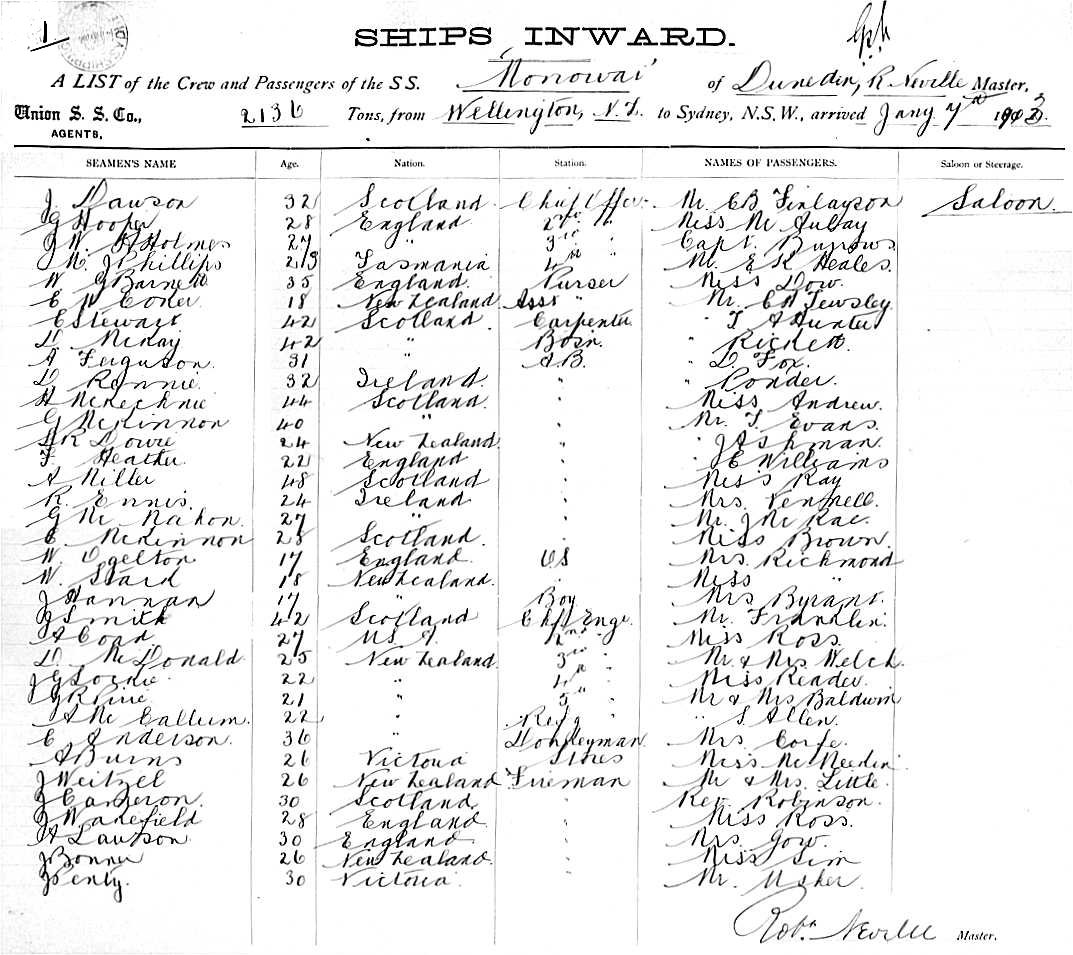 1
SHIPS INWARD.
A LIST of the Crew and Passengers of the SS. Monowai of Dunedin, R Neville Master,
Union S. S. Co., 2136 Tons, from Wellington, N.Z. to Sydney, N.S.W., arrived Jany 7th 1903.
AGENTS,
SEAMEN'S NAME Age. Nation. Station. NAMES OF PASSENGERS. Saloon or Steerage.
J. Dawson 32 Scotland Chief Offcr. Mr. CB Finlayson Saloon.
G Hooper 28 England 2nd " Miss McAulay
J W. H Holmes 27 " 3rd " Capt. Burrows
J Mc J Phillips 23 Tasmania 4th " Mr. E R Heales.
W G Barnett 35 England Purser Miss Dow.
C W Coker 18 New Zealand Asst " Mr. CH Tewsley
C Stewart 42 Scotland Carpenter " T A Hunter
D. McKay 42 " Bosn. " Rickett.
A Ferguson. 31 " A.B. " D. Fox.
D. Rennie. 32 Ireland. " " Ponder.
H McKechnie 44 Scotland. " Miss Andrew.
G McKinnon 40 " " Mr. T. Evans.
R Dowie 24 New Zealand " " J Ashman.
F. Heather 22 England " " J E Williams
A Miller 48 Scotland " Miss Kay
R. Ennis. 24 Ireland " Mrs.
G McMahon. 27 " " Mr. J McRae.
C. McKinnon 28 Scotland. " Miss Brown.
W. Ogelton 17 England. OS Mrs. Richmond
W. 18 New Zealand. " Miss "
J Hannan 17 " Boy Mrs Byrant.
J Smith 42 Scotland Chf Engr. Mr. Franklin.
A Coad 27 U.S.A. 2nd " Miss Ross.
D. McDonald. 25 New Zealand. 3rd " Mr. & Mrs Welch.
J G 22 " 4th " Miss Reader.
J R Pirie 21 " 5th " Mr & Mrs Baldwin
A McCallum. 22 " Refg " " S. Allen.
C Anderson. 36 " Donkeyman. Mrs Corfe.
A Burns 26 Victoria Stores Miss
J Weitzel 26 New Zealand Fireman Mr & Mrs. Little.
J Cameron. 30 Scotland " Rev. Robinson.
J Wakefield 28 England " Miss Ross.
A Lawson. 30 England " Mrs Gow.
J Bonner 26 New Zealand. " Miss Sim
J Penty. 30 Victoria. " Mr. Usher.
Robt. Neville Master.